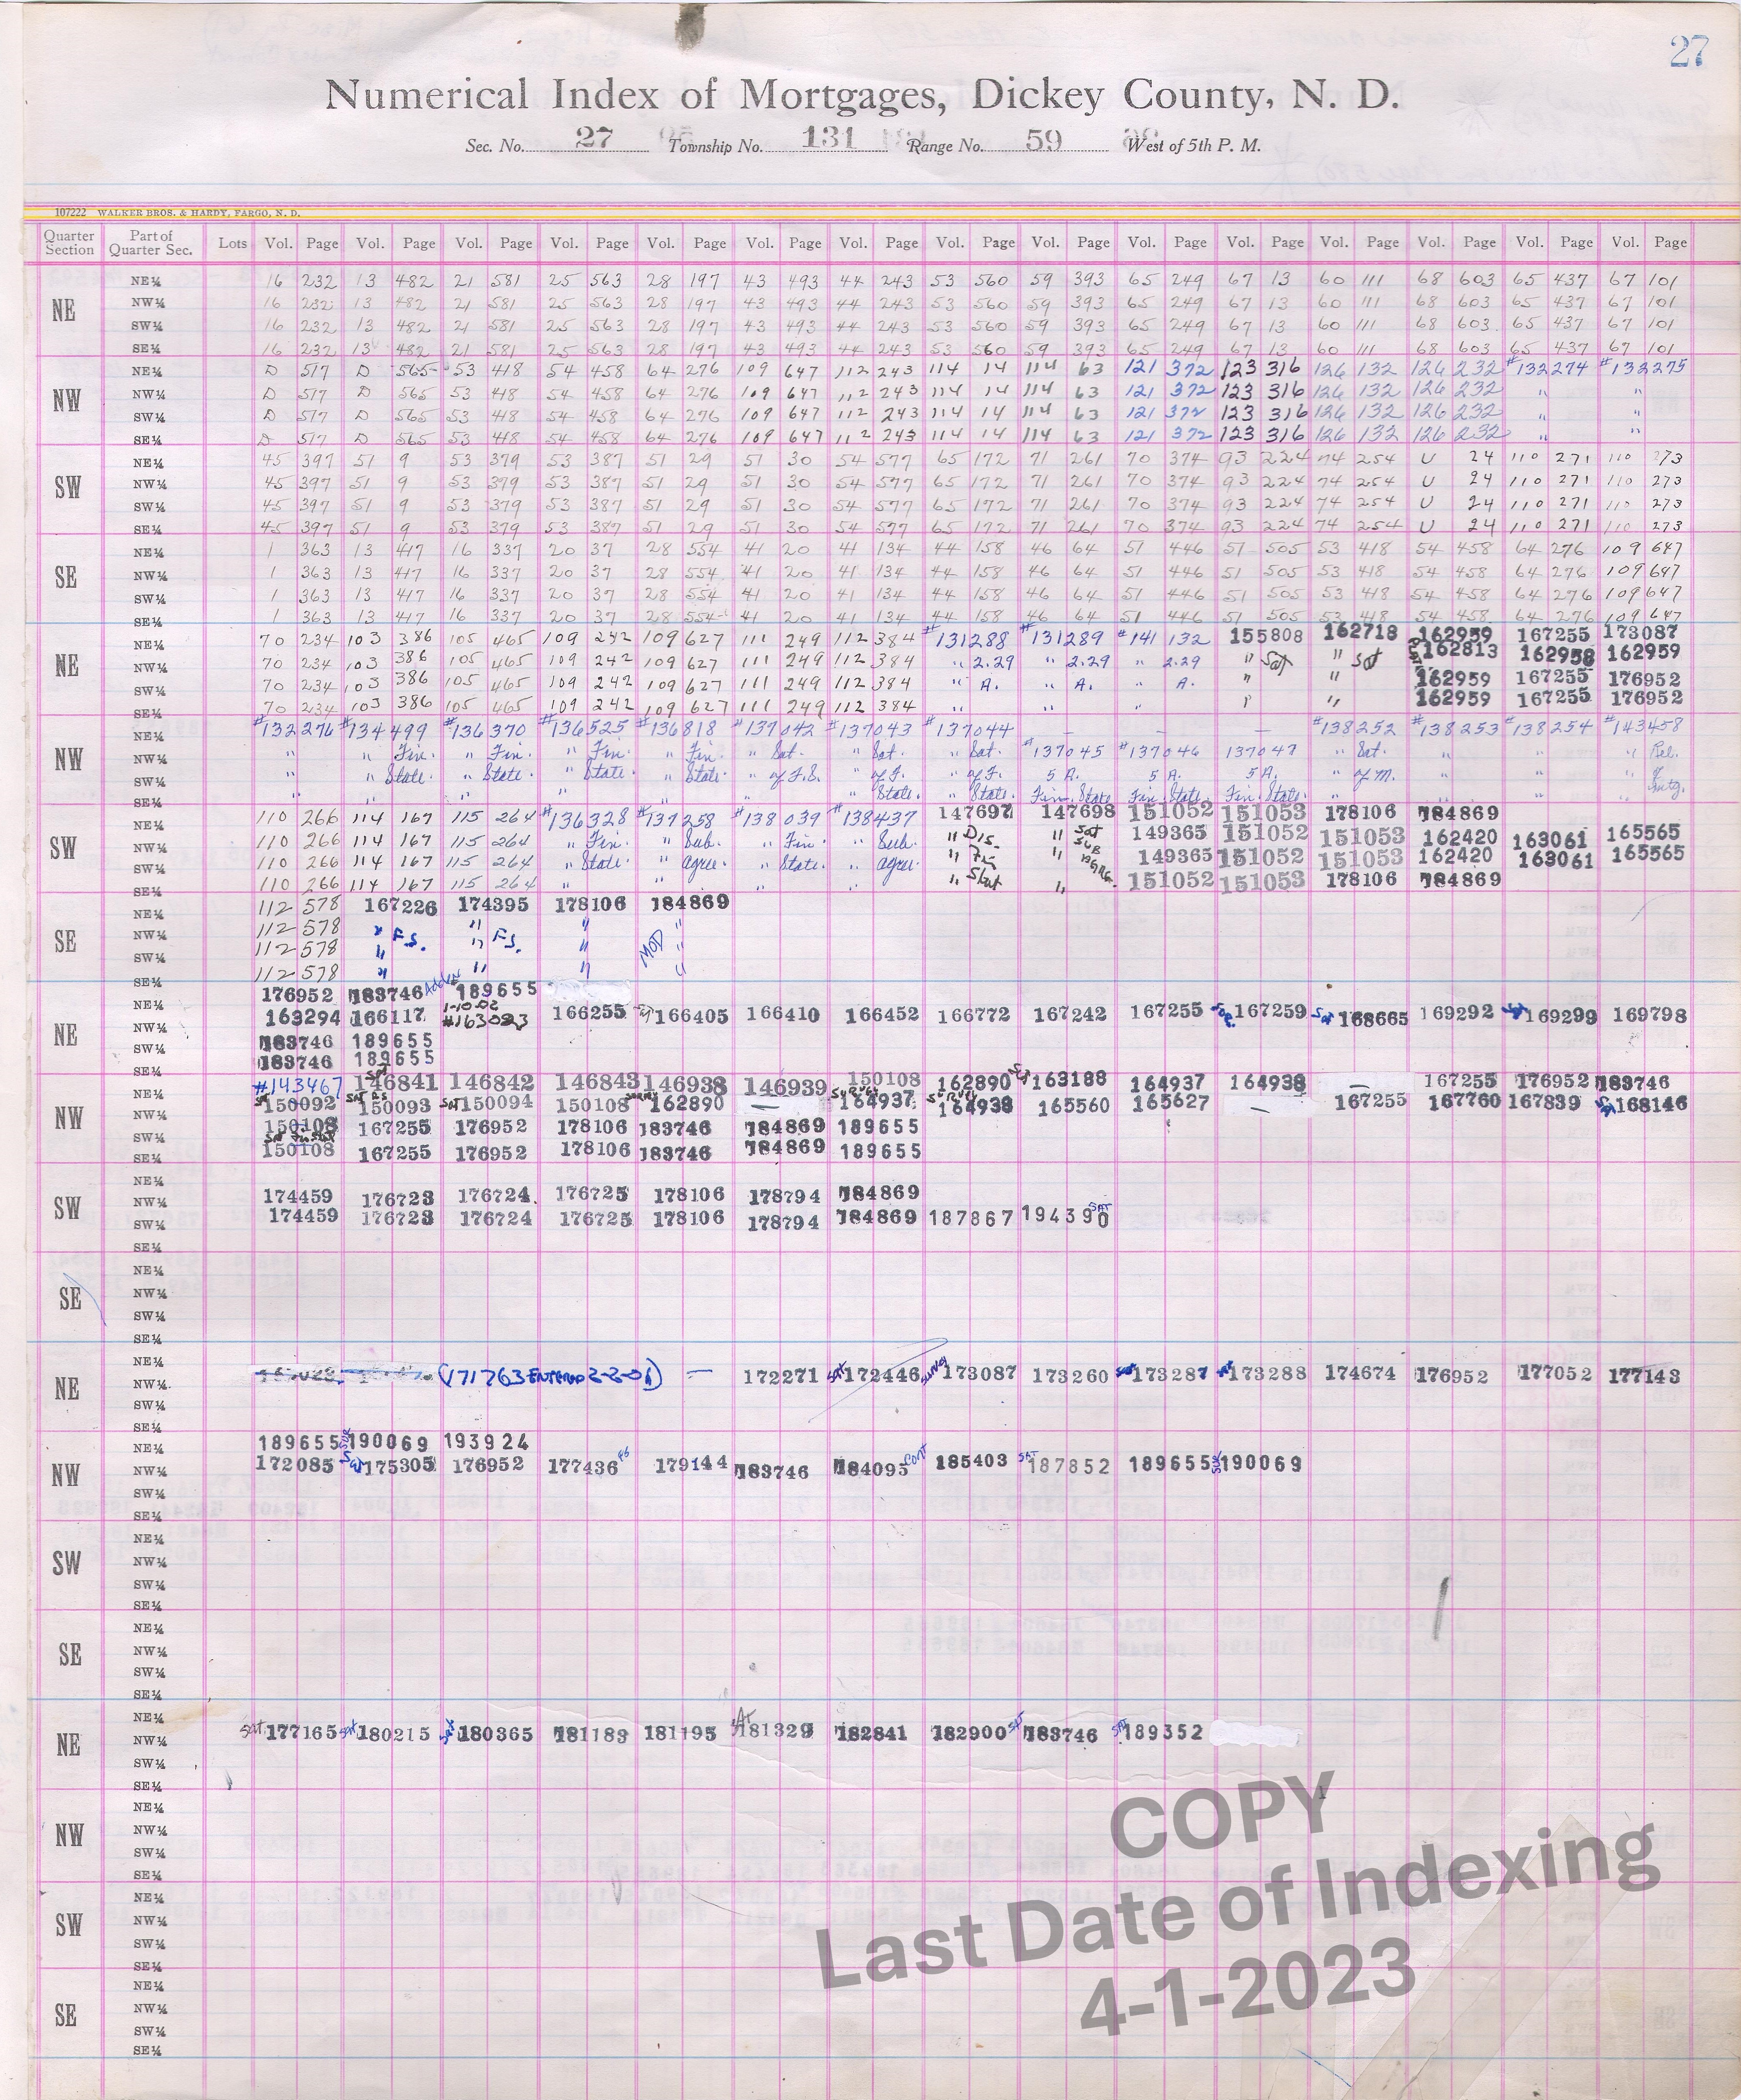 27
Numerical Index of Mortgages, Dickey County, N. D.
Sec. No. 27 Township No. 131 Range No. 59 West of 5th P. M.
107222 WALKER BROS. & HARDY, FARGO, N. D.
Quarter Section Part of Quarter Sec. Lots Vol. Page Vol. Page Vol. Page Vol. Page Vol. Page Vol. Page Vol. Page Vol. Page Vol. Page Vol. Page Vol. Page Vol. Page Vol. Page Vol. Page Vol. Page
NE
NE¼ 16 232 13 482 21 581 25 563 28 197 43 493 44 243 53 560 59 393 65 249 67 13 60 111 68 603 65 437 67 101
NW¼ 16 232 13 482 21 581 25 563 28 197 43 493 44 243 53 560 59 393 65 249 67 13 60 111 68 603 65 437 67 101
SW¼ 16 232 13 482 21 581 25 563 28 197 43 493 44 243 53 560 59 393 65 249 67 13 60 111 68 603 65 437 67 101
SE¼ 16 232 13 482 21 581 25 563 28 197 43 493 44 243 53 560 59 393 65 249 67 13 60 111 68 603 65 437 67 101
NW
NE¼ D 517 D 565 53 418 54 458 64 276 109 647 112 243 114 14 114 63 121 372 123 316 126 132 126 232 #132274 #132275
NW¼ D 517 D 565 53 418 54 458 64 276 109 647 112 243 114 14 114 63 121 372 123 316 126 132 126 232 " "
SW¼ D 517 D 565 53 418 54 458 64 276 109 647 112 243 114 14 114 63 121 372 123 316 126 132 126 232 " "
SE¼ D 517 D 565 53 418 54 458 64 276 109 647 112 243 114 14 114 63 121 372 123 316 126 132 126 232 " "
SW
NE¼ 45 397 51 9 53 379 53 387 51 29 51 30 54 577 65 172 71 261 70 374 93 224 74 254 U 24 110 271 110 273
NW¼ 45 397 51 9 53 379 53 387 51 29 51 30 54 577 65 172 71 261 70 374 93 224 74 254 U 24 110 271 110 273
SW¼ 45 397 51 9 53 379 53 387 51 29 51 30 54 577 65 172 71 261 70 374 93 224 74 254 U 24 110 271 110 273
SE¼ 45 397 51 9 53 379 53 387 51 29 51 30 54 577 65 172 71 261 70 374 93 224 74 254 U 24 110 271 110 273
SE
NE¼ 1 363 13 417 16 337 20 37 28 554 41 20 41 134 44 158 46 64 51 446 51 505 53 418 54 458 64 276 109 647
NW¼ 1 363 13 417 16 337 20 37 28 554 41 20 41 134 44 158 46 64 51 446 51 505 53 418 54 458 64 276 109 647
SW¼ 1 363 13 417 16 337 20 37 28 554 41 20 41 134 44 158 46 64 51 446 51 505 53 418 54 458 64 276 109 647
SE¼ 1 363 13 417 16 337 20 37 28 554 41 20 41 134 44 158 46 64 51 446 51 505 53 418 54 458 64 276 109 647
NE
NE¼ 70 234 103 386 105 465 109 242 109 627 111 249 112 384 #131288 #131289 #141 132 155808 162718 162959 167255 173087
NW¼ 70 234 103 386 105 465 109 242 109 627 111 249 112 384 " 2.29 " 2.29 " 2.29 " Sat " Sat 162813 162958 162959
SW¼ 70 234 103 386 105 465 109 242 109 627 111 249 112 384 " A. " A. " A. " " 162959 167255 176952
SE¼ 70 234 103 386 105 465 109 242 109 627 111 249 112 384 162959 167255 176952
NW
NE¼ #132276 #134499 #136370 #136525 #136818 #137042 #137043 #137044 — — — #138252 #138253 #138254 #143458
NW¼ " " Fin. " Fin. " Fin. " Fin. " Sat. " Sat. " Sat. #137045 #137046 137047 " Sat. " " " Rel.
SW¼ " " State. " State. " State. " State " of F.S. " of F. " of F. 5 A. 5 A. 5 A. " of M. " " " of
SE¼ " " " " " " State. " State. Fin. State Fin. State. Fin. State. " " " " Mtg.
SW
NE¼ 110 266 114 167 115 264 #136328 #137258 #138039 #138437 147697 147698 151052 151053 178106 184869
NW¼ 110 266 114 167 115 264 " Fin. " Sub. " Fin. " Sub. " Dis. " Sat 149365 151052 151053 162420 163061 165565
SW¼ 110 266 114 167 115 264 " State. " agree. " State. " agree. " Fin " 149365 151052 151053 162420 163061 165565
SE¼ 110 266 114 167 115 264 " " " " " Stat " 151052 151053 178106 184869
SE
NE¼ 112 578 167226 174395 178106 184869
NW¼ 112 578 " F.S. " F.S. " MOD "
SW¼ 112 578 " " " "
SE¼ 112 578 " " " "
NE
176952 183746 189655
NE¼ 163294 166117 1-10-02 #163083 166255 166405 166410 166452 166772 167242 167255 167259 168665 169292 169299 169798
NW¼
SW¼ 183746 189655
SE¼ 183746 189655
NW
NE¼ #143467 146841 146842 146843 146938 146939 150108 162890 163188 164937 164938 — 167255 176952 183746
NW¼ 150092 150093 150094 150108 162890 — 164937 164938 165560 165627 — 167255 167760 167839 168146
SW¼ 150108 167255 176952 178106 183746 184869 189655
SE¼ 150108 167255 176952 178106 183746 184869 189655
SW
NE¼
NW¼ 174459 176723 176724 176725 178106 178794 184869
SW¼ 174459 176723 176724 176725 178106 178794 184869 187867 194390 SAT
SE¼
SE
NE¼
NW¼
SW¼
SE¼
NE
NE¼
NW¼ (171763 Entered 2-2-01) — 172271 172446 173087 173260 173287 173288 174674 176952 177052 177143
SW¼
SE¼
NW
NE¼ 189655 190069 193924
NW¼ 172085 175305 176952 177436 FS 179144 183746 184095 185403 187852 189655 190069
SW¼
SE¼
SW
NE¼
NW¼
SW¼
SE¼
SE
NE¼
NW¼
SW¼
SE¼
NE
NE¼
NW¼ Sat. 177165 180215 180365 181183 181195 181329 182841 182900 183746 189352
SW¼
SE¼
NW
NE¼
NW¼
SW¼
SE¼
SW
NE¼
NW¼
SW¼
SE¼
SE
NE¼
NW¼
SW¼
SE¼
COPY
Last Date of Indexing
4-1-2023